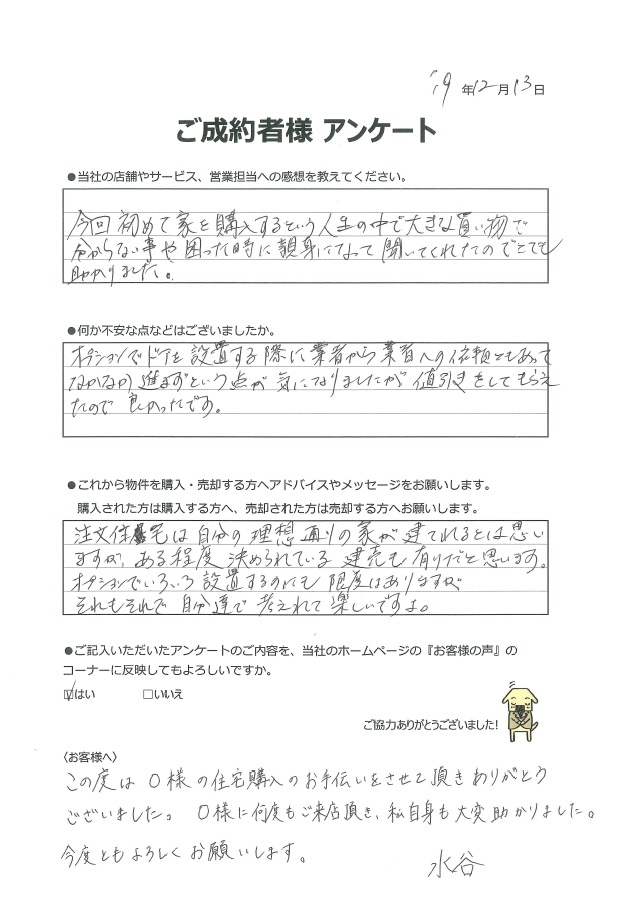 '19年12月13日
ご成約者様 アンケート
●当社の店舗やサービス、営業担当への感想を教えてください。
今回初めて家を購入するという人生の中で大きな買い物で
分からない事や困った時に親身になって聞いてくれたのでとても
助かりました。
●何か不安な点などはございましたか。
オプションでドアを設置する際に業者から業者への依頼ともあって
なかなか進まずという点が気になりましたが値引きをしてもらえ
たので良かったです。
●これから物件を購入・売却する方へアドバイスやメッセージをお願いします。
購入された方は購入する方へ、売却された方は売却する方へお願いします。
注文住宅は自分の理想通りの家が建てれるとは思い
ますが、ある程度決められている建売も有りだと思います。
オプションでいろいろ設置するのにも限度はありますが
それもそれで自分達で考えれて楽しいですよ。
●ご記入いただいたアンケートのご内容を、当社のホームページの『お客様の声』の
コーナーに反映してもよろしいですか。
☑はい □いいえ
ご協力ありがとうございました!
〈お客様へ〉
この度は O様の住宅購入のお手伝いをさせて頂きありがとう
ございました。 O様に何度もご来店頂き、私自身も大変助かりました。
今度ともよろしくお願いします。
水谷